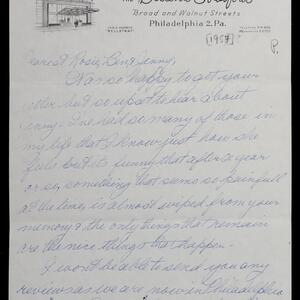 The
Broad and Walnut Streets
Philadelphia 2, Pa.
[1957]
P.
Dearest Rosie, Ben & Jenny,
Was so happy to get your
letter but so upset to hear about
Jenny. I've had so many of those in
my life that I know just how she
feels but its funny that after a year
or so, something that seems so painfull
at the time is almost wiped from your
memory & the only things that remain
are the nice things that happen.
I won't be able to send you any
reviews as we are now in Philadelphia